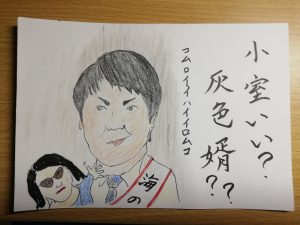 小室いい?
灰色婿??
コムロイイハイイロムコ
海の